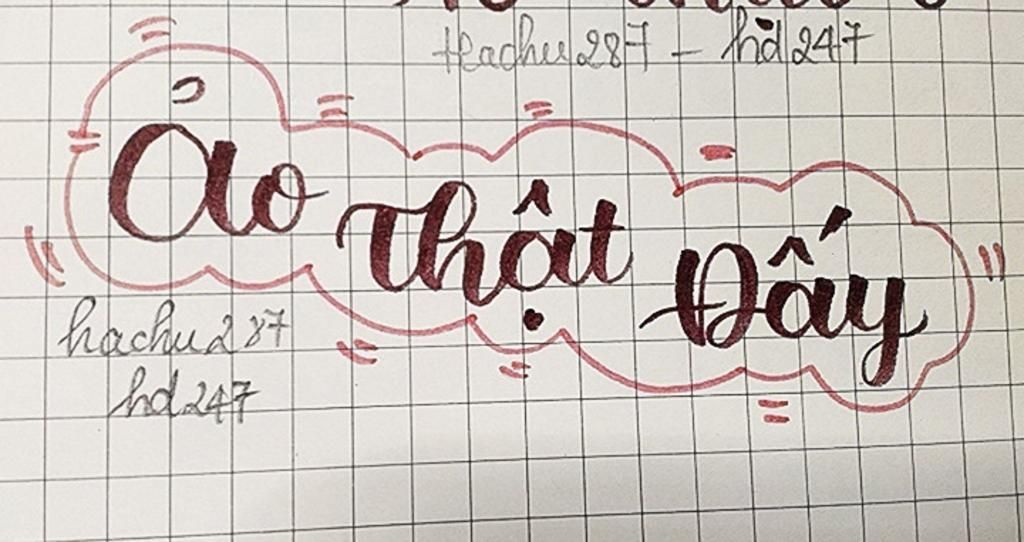 hachu287 - hd247
Ảo
Thật
Đấy
hachu287
hd247